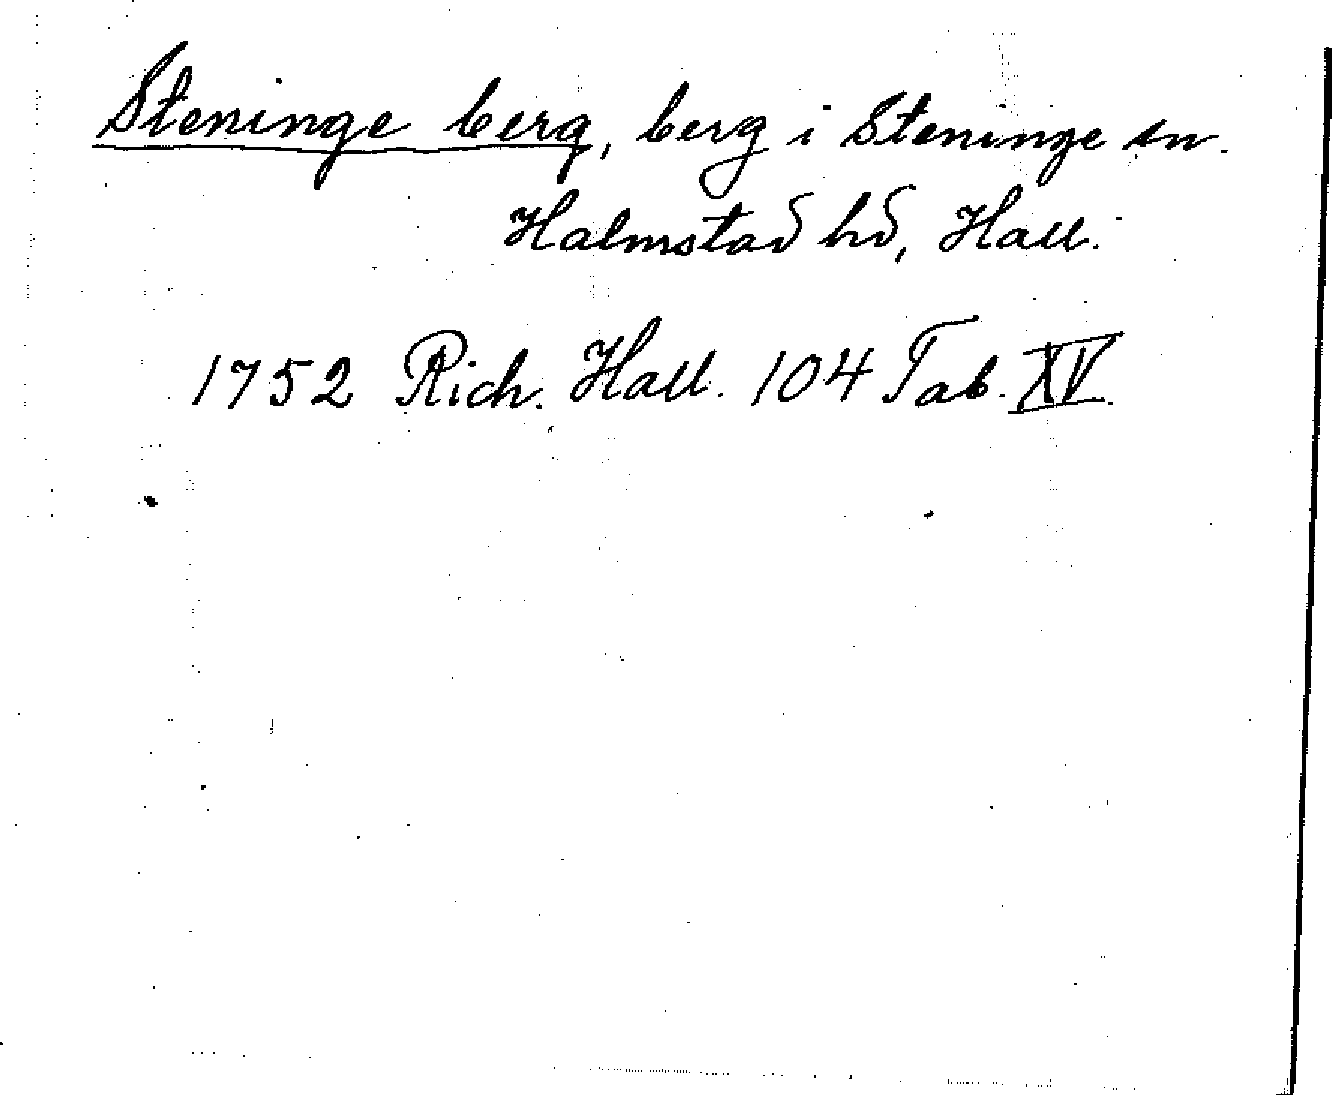 Steninge berg, berg i Steninge sn.
Halmstad hd, Hall.
1752 Rich. Hall. 104 Tab. XV.